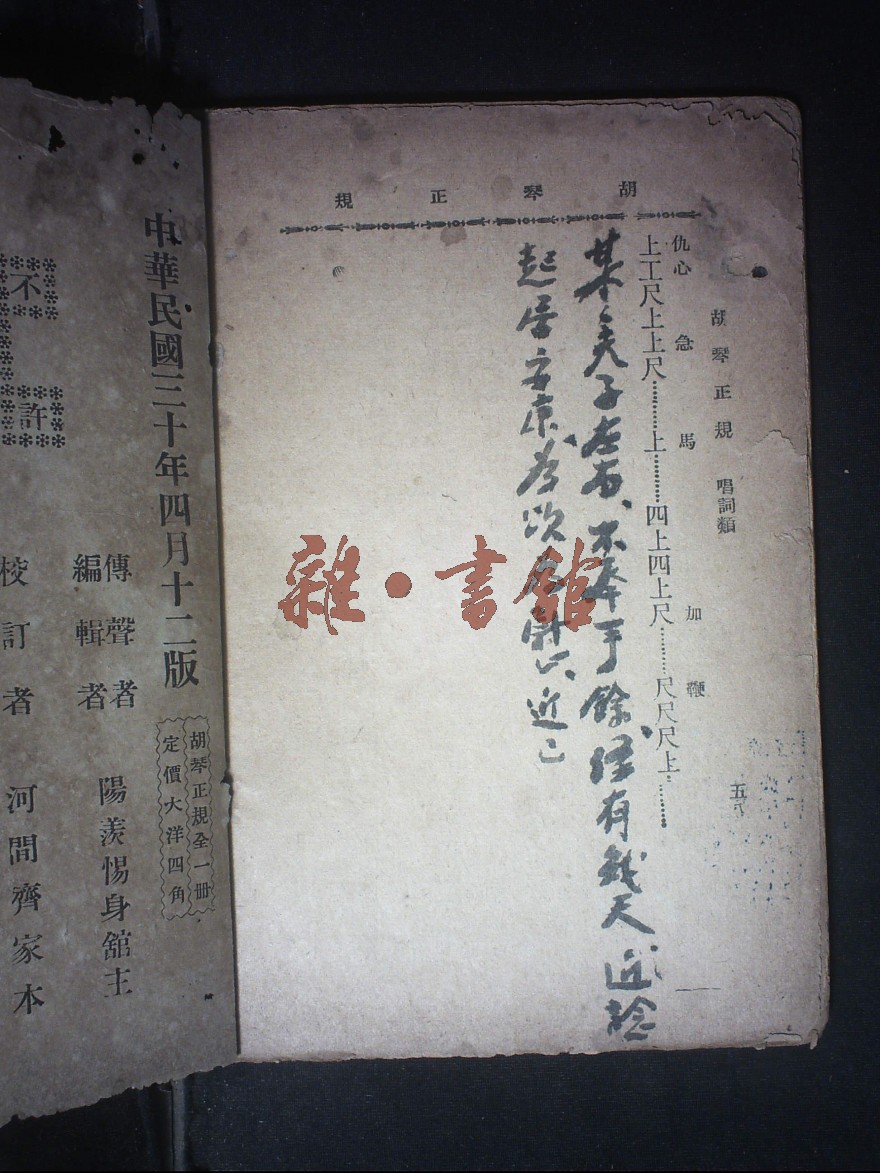 胡琴正規
胡琴正規 唱詞類
仇心 急 馬 加 鞭
上工尺上上尺…………上…………四上四上尺…………尺尺尺上…………
某夫子左右、不奉手餘、 有 天 近諗
起居
雜·書館
中華民國三十年四月十二版
胡琴正規全一冊
定價大洋四角
傳聲者 陽羨惕身舘主
編輯者
校訂者 河間齊家本
不許